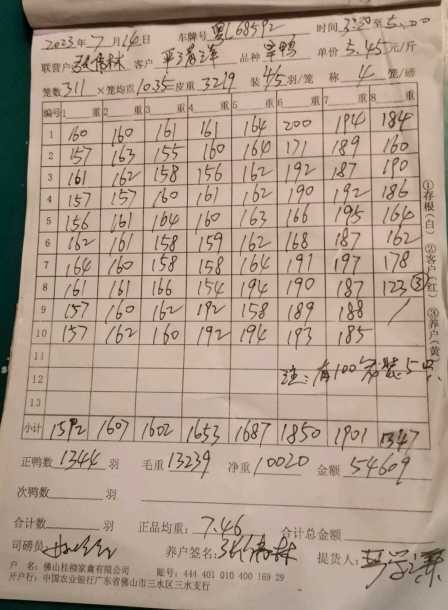 2023年7月14日 车牌号 粤L68592 时间 3:30至5:00
联营户 客户 品种 宰鸭 单价 5.45元/斤
笼数 311 ×笼均重 10.35 皮重 3219 装4/5羽/笼 称 4 笼/磅
编号 1 重 2 重 3 重 4 重 5 重 6 重 7 重 8 重
1 160 160 161 161 164 200 194 184
2 157 163 155 160 164 171 189 160
3 161 162 158 156 162 192 187 190
4 157 157 160 161 162 190 192 186
5 156 161 164 160 163 166 195 164
6 162 161 158 159 162 168 187 162
7 164 160 158 158 164 191 197 178
8 161 161 166 154 194 190 187 123 ③
9 157 160 162 192 158 189 188 /
10 157 162 160 192 194 193 185
11
12 注:有100笼装5只
13
小计 1592 1607 1602 1653 1687 1850 1901 1347
正鸭数 1344 羽 毛重 13239 净重 10020 金额 54609
次鸭数 羽
合计数 羽 正品均重: 7.46 合计总金额
司磅员 养户签名: 提货人:
户 名:佛山桂柳家禽有限公司 账号:444 401 010 400 169 29
开户行:中国农业银行广东省佛山市三水区三水支行
①存根(白) ②客户(红) ③养户(黄)